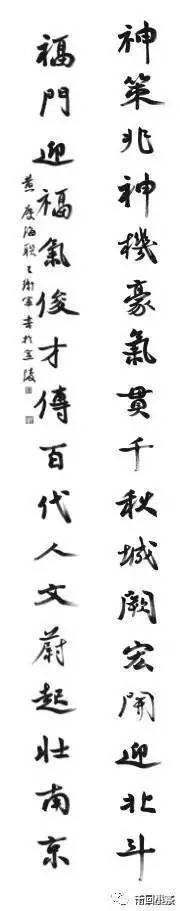 神策兆神機豪氣貫千秋城闕宏開迎北斗
福門迎福氣俊才傳百代人文蔚起壯南京
黄慶海联王衛軍書於金陵